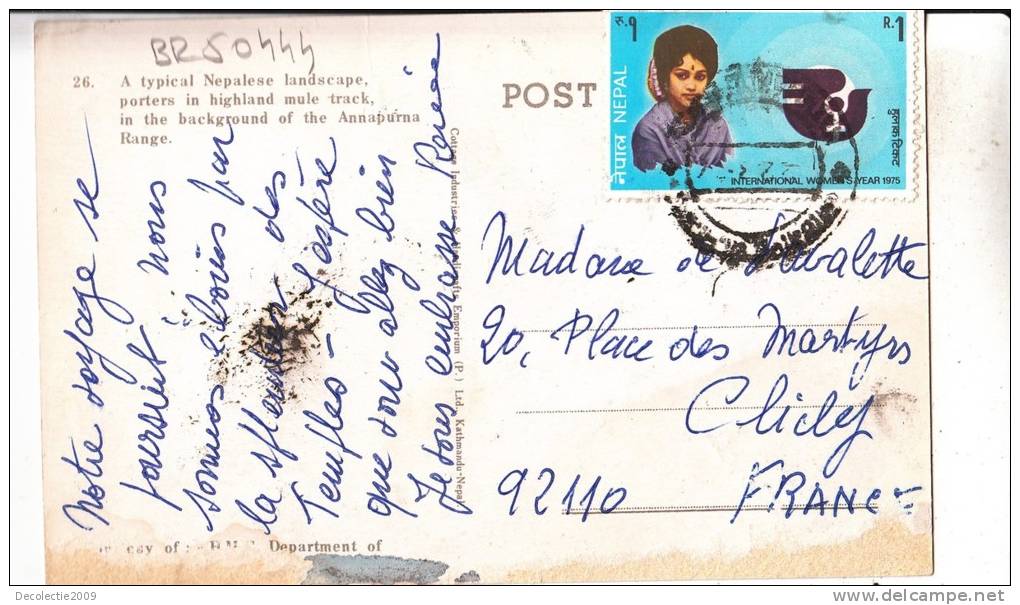 BR50444
26. A typical Nepalese landscape,
porters in highland mule track,
in the background of the Annapurna
Range.
POST
रु. १
R. 1
नेपाल NEPAL
हुलाक टिकट
INTERNATIONAL WOMEN'S YEAR 1975
Notre voyage se
poursuit nous
sommes éblouis par
la splendeur des
Temples - J'espère
que vous allez bien
Je vous embrasse
Cottage Industries & Handicrafts Emporium (P.) Ltd., Kathmandu-Nepal
Madame de Lavalette
20, Place des Martyrs
Clichy
92110 FRANCE
of : H.M.G. Department of
Decolectie2009
www.delcampe.net